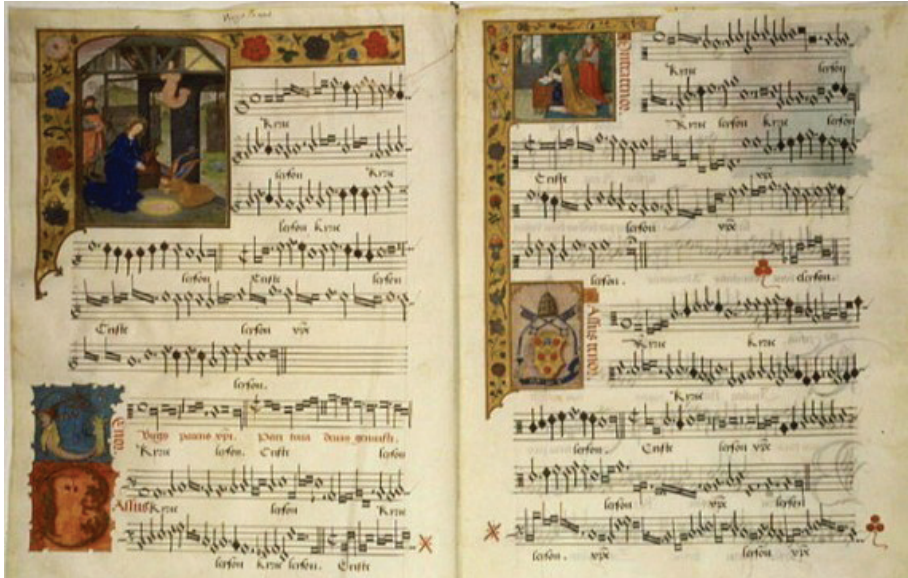 Kyrie
leyson Kyrie
leyson kyrie
leyson Criste leyson
Criste leyson xpe
leyson.
Tenor.
Virgo parens xpi. genuisti.
Kyrie leyson. Criste leyson
Bassus Kyrie leyson Kyrie
leyson kyrie leyson. Criste
Kyrie leyson
Kyrie leyson kyrie leyson
Criste xpe
leyson xpe
leyson. eleyson.
Kyrie Kyrie
Kyrie
leyson. Criste leyson xpe
leyson xpe leyson
leyson. xpe leyson xpe